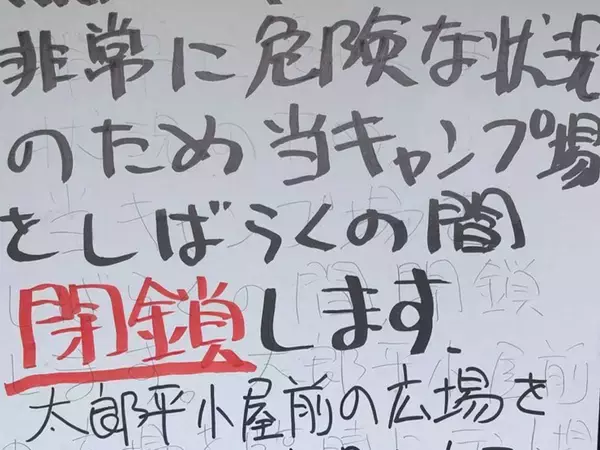 非常に危険な状況
のため当キャンプ場
をしばらくの間
閉鎖します.
太郎平小屋前の広場を